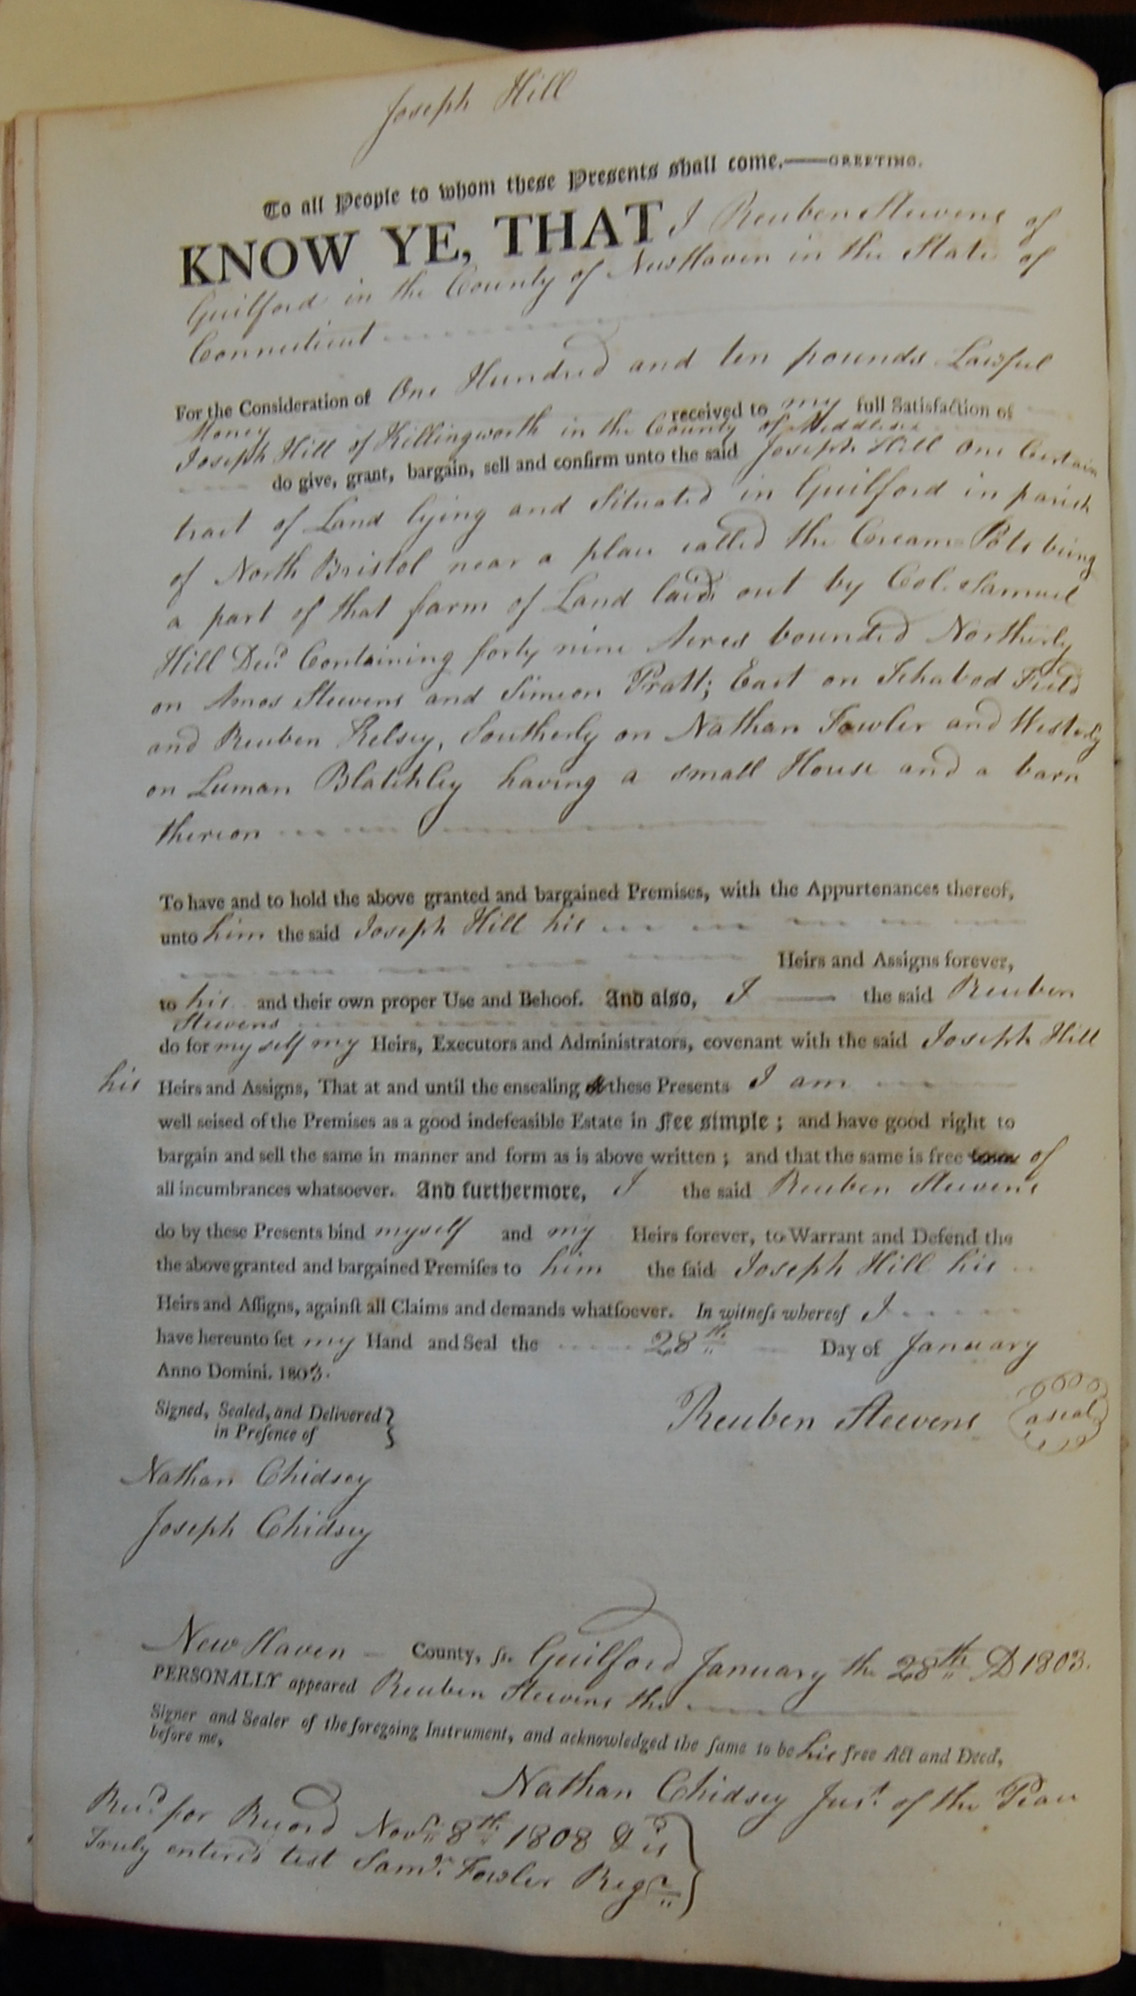 Joseph Hill
To all People to whom these Presents shall come.——GREETING.
KNOW YE, THAT I Reuben Stevens of
Guilford in the County of New Haven in the State of
Connecticut
For the Consideration of One Hundred and ten pounds Lawful
Money received to my full Satisfaction of
Joseph Hill of Killingworth in the County of Middlesex
do give, grant, bargain, sell and confirm unto the said Joseph Hill One Certain
tract of Land lying and Situated in Guilford in parish
of North Bristol near a place called the Cream=Pots being
a part of that farm of Land laid out by Col. Samuel
Hill Decd Containing forty nine Acres bounded Northerly
on Amos Stevens and Simeon Pratt; East on Ichabod Field
and Reuben Kelsey, Southerly on Nathan Fowler and Westerly
on Luman Blatchley having a small House and a barn
thereon
To have and to hold the above granted and bargained Premises, with the Appurtenances thereof,
unto him the said Joseph Hill his
Heirs and Assigns forever,
to his and their own proper Use and Behoof. And also, I —— the said Reuben
Stevens
do for my self my Heirs, Executors and Administrators, covenant with the said Joseph Hill
his Heirs and Assigns, That at and until the ensealing these Presents I am
well seised of the Premises as a good indefeasible Estate in fee simple; and have good right to
bargain and sell the same in manner and form as is above written; and that the same is free of
all incumbrances whatsoever. And furthermore, I the said Reuben Stevens
do by these Presents bind myself and my Heirs forever, to Warrant and Defend the
the above granted and bargained Premiſes to him the ſaid Joseph Hill his
Heirs and Aſſigns, againſt all Claims and demands whatſoever. In witneſs whereof I
have hereunto ſet my Hand and Seal the 28th Day of January
Anno Domini. 1803.
Signed, Sealed, and Delivered }
in Preſence of
Reuben Stevens a seal
Nathan Chidsey
Joseph Chidsey
New Haven — County, ſs. Guilford January the 28th AD 1803.
PERSONALLY appeared Reuben Stevens the
Signer and Sealer of the foregoing Instrument, and acknowledged the ſame to be his free Act and Deed,
before me,
Nathan Chidsey Just. of the Peace
Recd for Record Novr 8th 1808 & is
Truly entered test Saml Fowler Regr